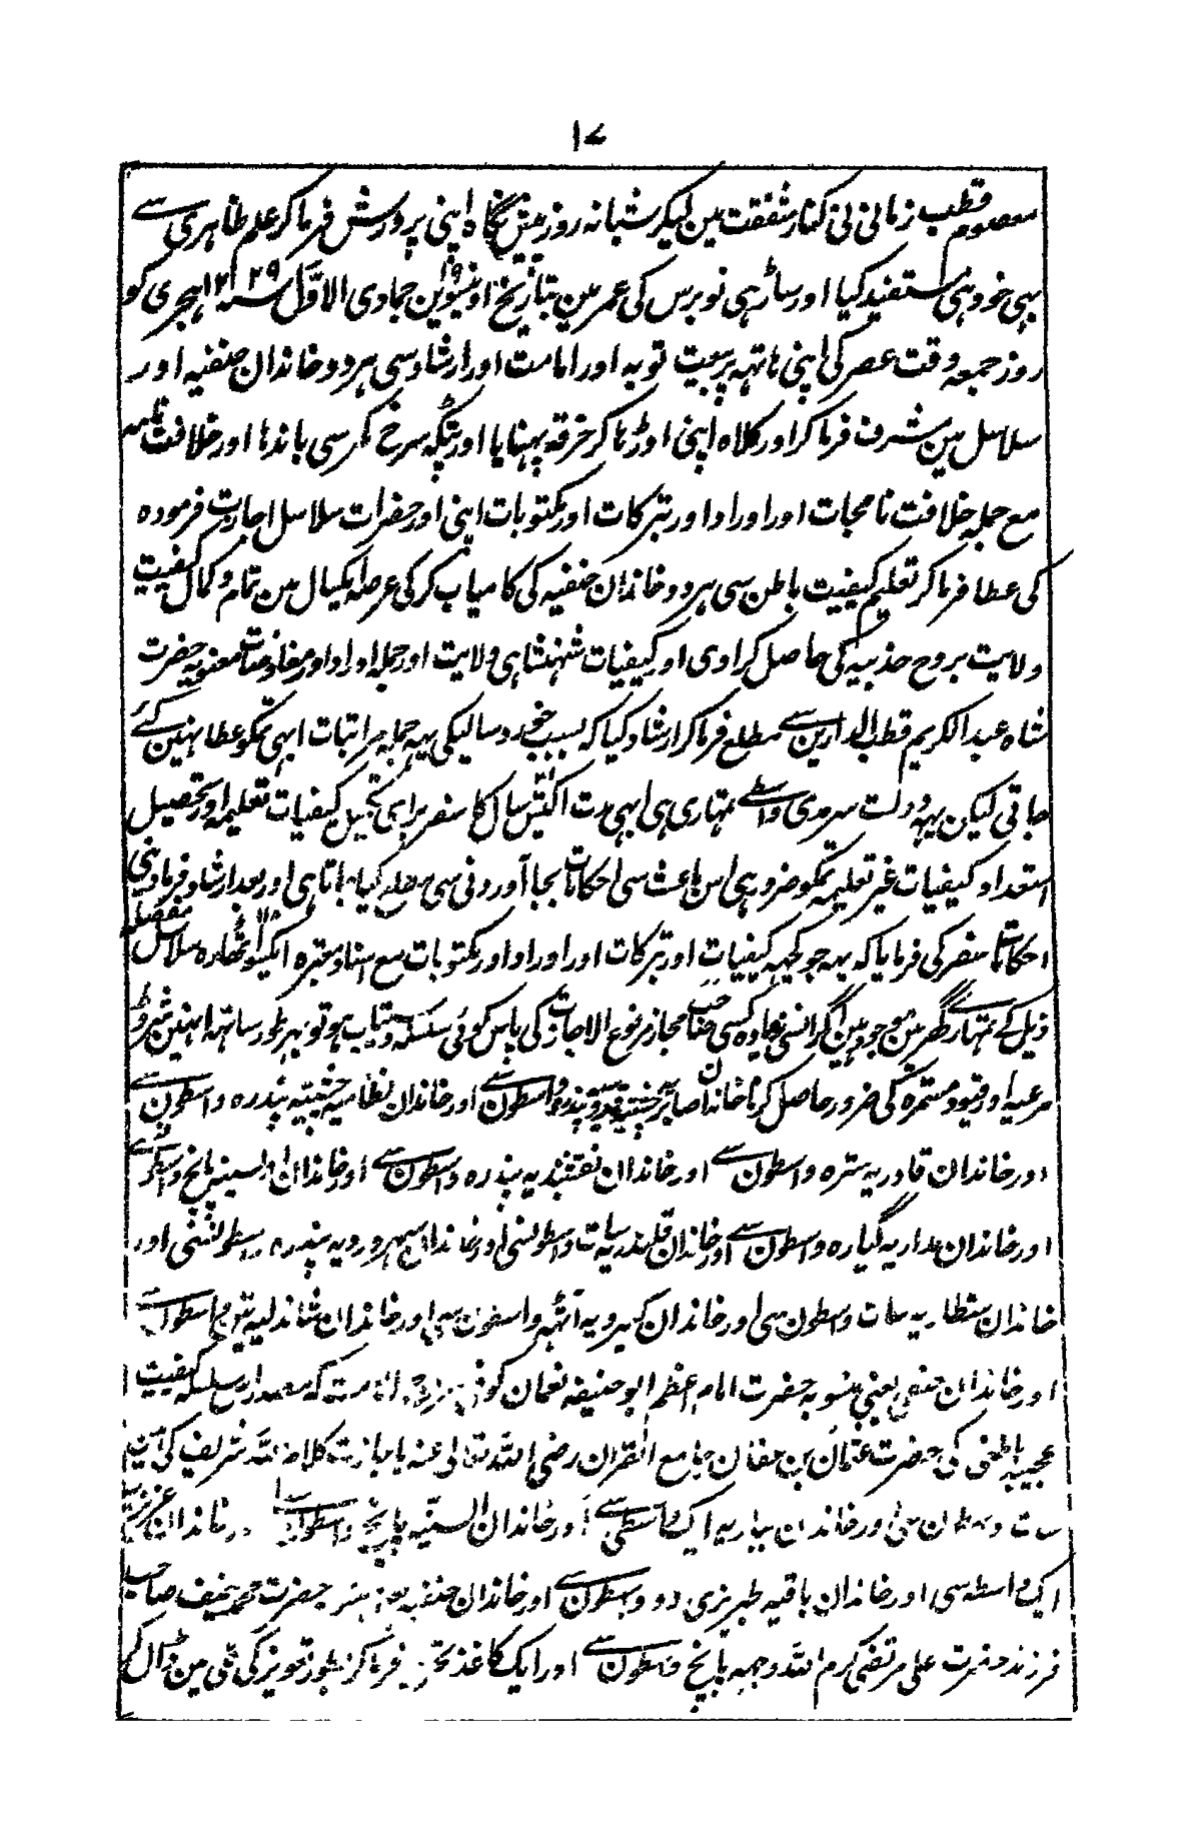 ۱۷
معصوم قطب زمانی نی کنار شفقت مین لیکر شبانہ روز پیش نگاہ اپنی پرورش فرما کر علم ظاہری سے
بہی خود ہی مستفید کیا اور ساڑہی نو برس کی عمر مین بتاریخ اونیسوین ۱۹ جمادی الاوّل سنہ ۱۲۲۹ ہجری کو
روز جمعہ وقت عصر کی اپنی ہاتہہ پر بیعت توبہ اور امامت اور ارشاد سی ہر دو خاندان حنفیہ اور
سلاسل مین مشرف فرما کر اور کلاہ اپنی اوڑہا کر خرقہ پہنایا اور پٹکہ سرخ کمر سی باندہا اور خلافت نامہ
مع جملہ خلافت نامجات اور اوراد اور تبرکات اور مکتوبات اپنی اور حضرات سلاسل اجازت فرمودہ
کی عطا فرما کر تعلیم کیفیت باطن سی ہر دو خاندان حنفیہ کی کامیاب کر کی عرصہ یکسال مین تمام و کمال کیفیت
ولایت بروح جذبیہ کی حاصل کرا دی اور کیفیات شہنشاہی ولایت اور جملہ اوراد اور مفاوضات معنویہ حضرت
شاہ عبد الکریم قطب الدارین سے مطلع فرما کر ارشاد کیا کہ بسبب خورد سالیکی یہہ جملہ مراتبات ابہی تمکو عطا نہین کئے
جاتی لیکن یہہ دولت سرمدی واسطے تمہاری ہی ابہی مدت اکتیس سال کا سفر برای تکمیل کیفیات تعلیمہ اور تحصیل
استعداد کیفیات غیر تعلیمہ تمکو ضرور ہی اس باعث سی احکامات بجا آوردنی سی مطلع کیا جاتا ہی اور بعد ارشاد فرما دینی
احکامات سفر کی فرمایا کہ یہہ جو کچہہ کیفیات اور تبرکات اور اوراد اور مکتوبات مع اسناد معتبرہ ایکسو اٹھارہ ۱۱۸ سلاسل مفصلہ
ذیل کے تمہارے گھر مین موجود ہین اگر انسی زیادہ کسی صاحب مجاز مرفوع الاجازت کی پاس کوئی سلسلہ دستیاب ہو تو بہر طور ساتہہ انہین شروط
مرعیہ اور قیود مستمرہ کی ضرور حاصل کرنا خاندان صابریہ چشتیہ قدوسیہ پندرہ واسطون سے اور خاندان نظامیہ چشتیہ پندرہ واسطون سے
اور خاندان قادریہ سترہ واسطون سے اور خاندان نقشبندیہ پندرہ واسطون سے اور خاندان اویسیہ پانچ واسطون سے
اور خاندان مداریہ گیارہ واسطون سے اور خاندان قلندریہ سات واسطونسی اور خاندان سہروردیہ پندرہ واسطونسی اور
خاندان شطاریہ سات واسطون سی اور خاندان کبرویہ آٹہہ واسطون سی اور خاندان شاذلیہ تین واسطون سے
اور خاندان حنفی یعنی منسوبہ حضرت امام اعظم ابو حنیفہ نعمان کوفی امامت کہ مصدار سلسلہ کیفیت
عجیبہ باطنی کی حضرت عثمان بن عفان جامع القران رضی اللہ تعالی عنہ با جازت کلام اللہ شریف کی ہین
سات واسطون سی اور خاندان بیاریہ ایک واسطی سے اور خاندان السنیہ پانچ واسطون سے اور خاندان
ایک واسطہ سی اور خاندان باقیہ طبریزی دو واسطون سے اور خاندان حنفیہ یعنی حضرت محمد حنیف صاحب
فرزند حضرت علی مرتضی کرم اللہ وجہہ پانچ واسطون سے اور ایک کاغذ تحریر فرما کر بطور تعویز کی گلی مین ڈال کر